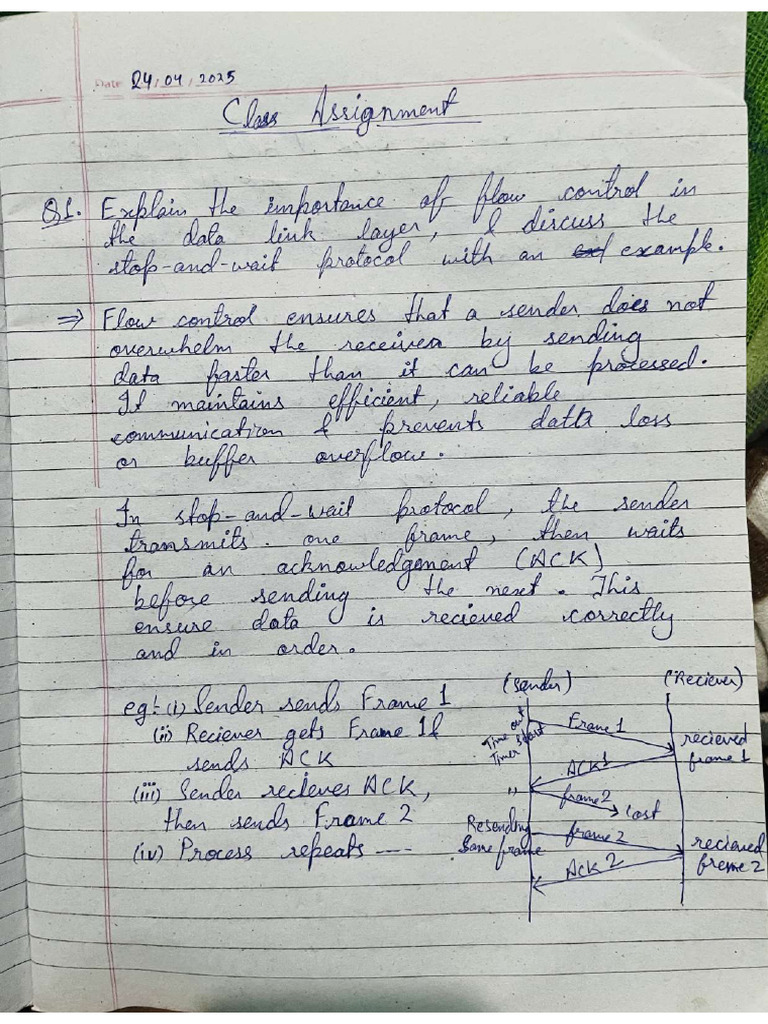 Date 24/04/2025
Class Assignment
Q1. Explain the importance of flow control in
the data link layer, & discuss the
stop-and-wait protocol with an example.
⇒ Flow control ensures that a sender does not
overwhelm the receiver by sending
data faster than it can be processed.
It maintains efficient, reliable
communication & prevents data loss
or buffer overflow.
In stop-and-wait protocol, the sender
transmits one frame, then waits
for an acknowledgement (ACK)
before sending the next. This
ensure data is recieved correctly
and in order.
eg:- (i) Sender sends Frame 1
(ii) Reciever gets Frame 1 &
sends ACK
(iii) Sender recieves ACK,
then sends Frame 2
(iv) Process repeats ----
(Sender)
(Reciever)
Time out
Timer start
Frame 1
recieved
frame 1
ACK 1
"
frame 2
Lost
Resending
Same frame
frame 2
recieved
freme 2
ACK 2